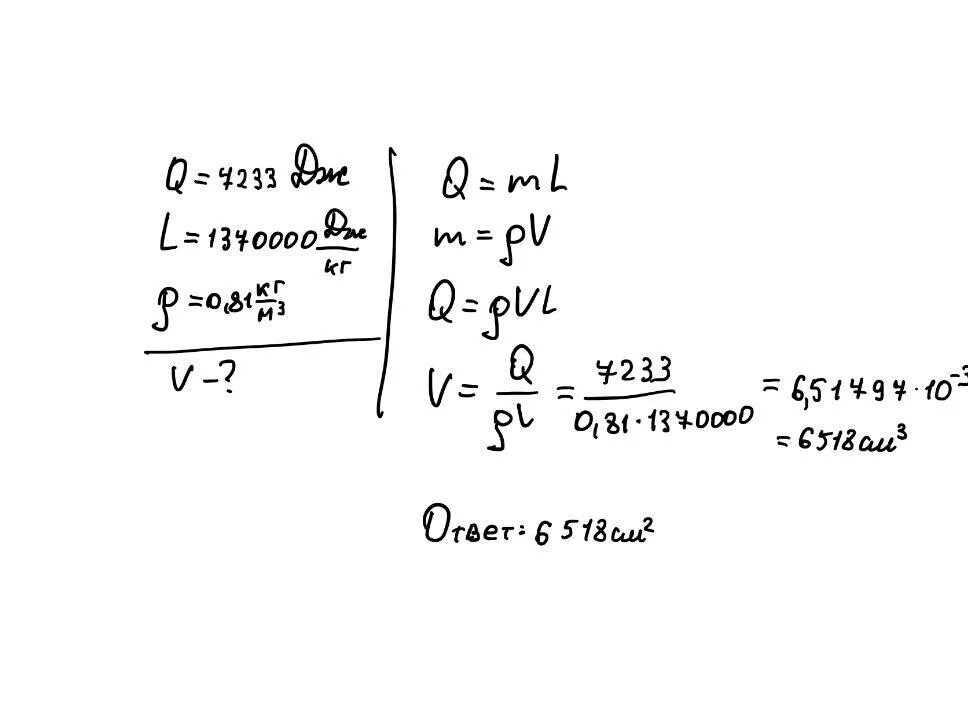 Q = 7233 Дж
L = 1370000 Дж/кг
ρ = 0,81 кг/м³
V - ?
Q = mL
m = ρV
Q = ρVL
V = Q/ρL = 7233/0,81·1370000 = 6,51797·10⁻³
= 6518 см³
Ответ: 6 518 см²